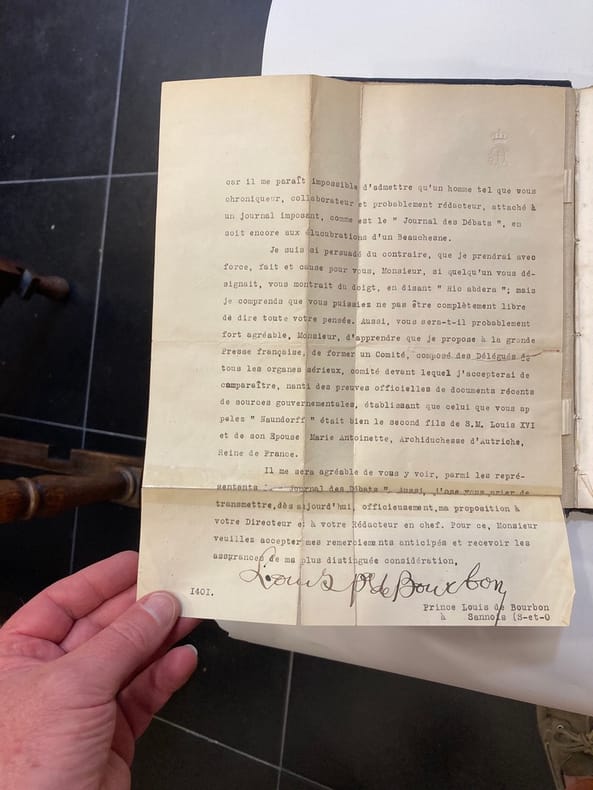 car il me paraît impossible d'admettre qu'un homme tel que vous
chroniqueur, collaborateur et probablement rédacteur, attaché à
un journal imposant, comme est le " Journal des Débats ", en
soit encore aux élucubrations d'un Beauchesne.
Je suis si persuadé du contraire, que je prendrai avec
force, fait et cause pour vous, Monsieur, si quelqu'un vous dé-
signait, vous montrait du doigt, en disant " Hic abdera "; mais
je comprends que vous puissiez ne pas être complètement libre
de dire toute votre pensée. Aussi, vous sera-t-il probablement
fort agréable, Monsieur, d'apprendre que je propose à la grande
Presse française, de former un Comité, composé des Délégués de
tous les organes sérieux, comité devant lequel j'accepterai de
comparaître, nanti des preuves officielles de documents récents
de sources gouvernementales, établissant que celui que vous ap
pelez " Naundorff " était bien le second fils de S.M. Louis XVI
et de son Epouse Marie Antoinette, Archiduchesse d'Autriche,
Reine de France.
Il me sera agréable de vous y voir, parmi les repré-
sentants Journal des Débats ". Aussi, j'ose vous prier de
transmettre,dès aujourd'hui, officieusement,ma proposition à
votre Directeur et à votre Rédacteur en chef. Pour ce, Monsieur
veuillez accepter mes remerciements anticipés et recevoir les
assurances de ma plus distinguée considération.
Louis Pce de Bourbon
I40I.
Prince Louis de Bourbon
à Sannois (S-et-O